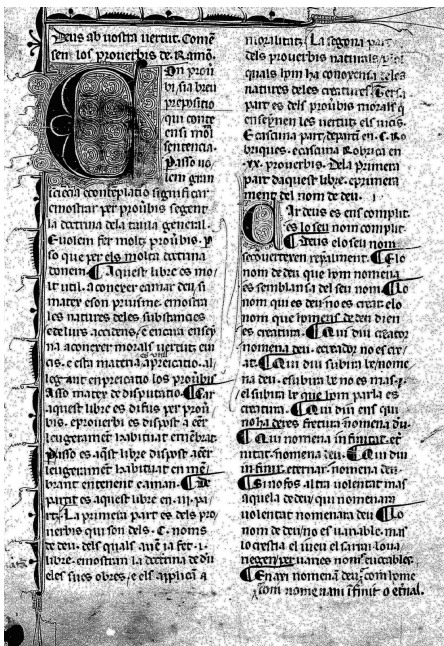 Deus ab uostra uertut. Comē
sen los prouerbis de. Ramō.
Con prouī
bi, sia breu
preposicio
qui conte
ensi mōl
sentencia.
Passo uo
lem gran
sciēcia econtēplacio significar.
emostrar per prouībis segent
la doctrina dela taula general.
Euolem fer molts prouībis. p
so que per els molta doctrina
donem. Aquest libre es mo
lt util. a conexer eamar deu si
mateix eson proisme. emostra
les natures deles substancies
edelurs accidens, e encara ensey
na aconexer morals uertuts eui
cis. e esta matexa apreicatio. al
leg ant enpreicatio los prouībis
Asso mateix de disputatio. Car
aquest libre es difus per prouī
bis. eprouerbi es dispost a eēr
leugerament habituat emēbrat
Passo es aqst libre dispost aeēr
leugerament habituat en mē
brant entenent eaman. De
partit es aquest libre en .iii. pa
rts. La primera part es dels pro
uerbis qui son dels .C. noms
de deu. dels quals auē ia fet .i.
libre. emostram la doctrina de dū
eles sues obres, e els applicā a
moralitats. La segona part
dels prouerbis naturals, p los
quals hom ha conoxensa deles
natures deles creatures. Tersa
part es dels prouībis morals q
enseynen les uertuts els uicis.
E cascuna part, departī en .C. Ro
briques. ecascuna Robrica en
.xx. prouerbis. Dela primera
part daquest libre. eprimera
ment del nom de deu. i.
Car deus es ens complit.
es lo seu nom complit.
Deus elo seu nom
seconuertexen reyalment. Elo
nom de deu que hom nomena
es semblansa del seu nom. Lo
nom qui es deu no es creat elo
nom que homens de deu dien
es creatura. Qui diu creator
nomena deu. ecreador no es cre
at. Qui diu subira be, nome
na deu. esubira be no es mas .i.
el subira be que hom parla es
creatura. Qui diu ens qui
no ha deres fretura nomena dū
Qui nomena infinitat. et
nitat. nomena deu. Qui diu
infinit. eternar. nomena deu
Si no fos altra uolentat mas
aquela de deu, qui nomenara
uolentat nomenara deu. Lo
nom de deu no es uariable. mas
lo crestia el iueu el sarray loua
negen per uaries noms eucables.
En axi nomenā deu, com home
com nomenam ifinit o etnal.